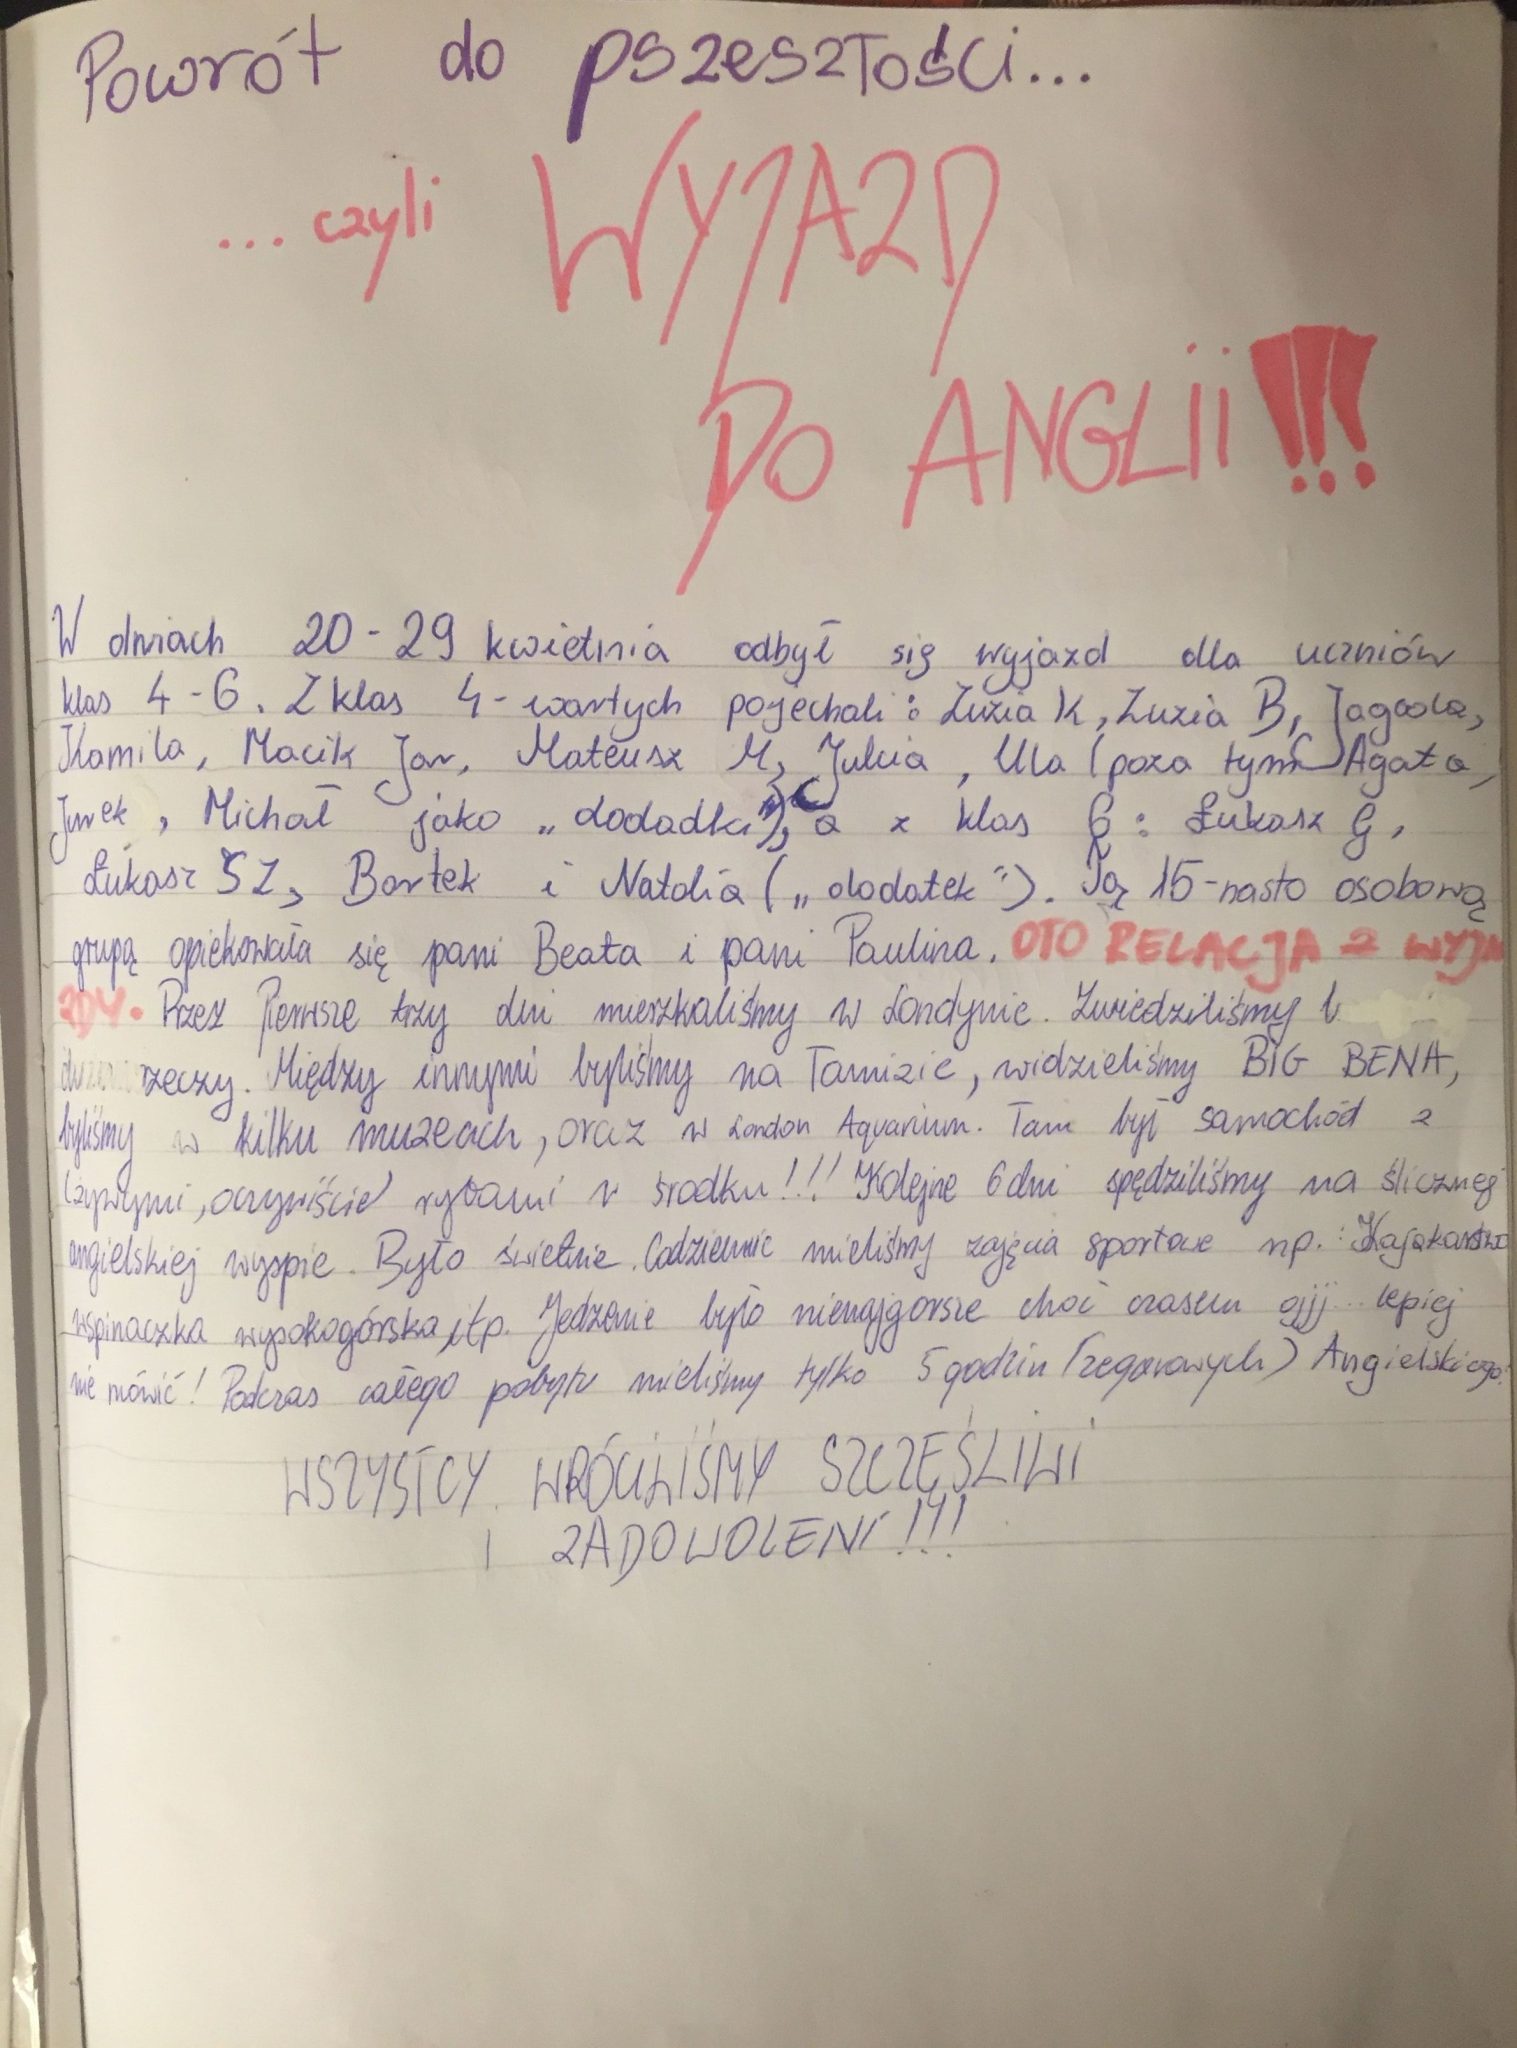 Powrót do pszeszłości...
...czyli WYJAZD
DO ANGLii!!!
W dniach 20-29 kwietnia odbył się wyjazd dla uczniów
klas 4-6. Z klas 4-wartych pojechali: Zuzia K, Zuzia B, Jagoda,
Kamila, Macik Jan, Mateusz M, Julcia, Ula (poza tym Agata,
Jurek, Michał jako „dodadki"), a z klas 6: Łukasz G,
Łukasz SZ, Bartek i Natalia („dodatek"). Tą 15-nasto osobową
grupą opiekowała się pani Beata i pani Paulina. OTO RELACJA Z WYJA
ZDU. Przez Pierwsze trzy dni mieszkaliśmy w Londynie. Zwiedziliśmy
rzeczy. Między innymi byliśmy na Tamizie, widzieliśmy BIG BENA,
byliśmy w kilku muzeach, oraz w London Aquarium. Tam był samochód z
(żywymi, oczywiście) rybami w środku!!! Kolejne 6 dni spędziliśmy na ślicznej
angielskiej wyspie. Było świetnie. Codziennie mieliśmy zajęcia sportowe np.: Kajakarstwo
wspinaczka wysokogórska, itp. Jedzenie było nienajgorsze choć czasem ojjj... lepiej
nie mówić! Podczas całego pobytu mieliśmy tylko 5 godzin (zegarowych) Angielskiego!
WSZYSTCY WRÓCILIŚMY SZCZĘŚLIWI
I ZADOWOLENI!!!